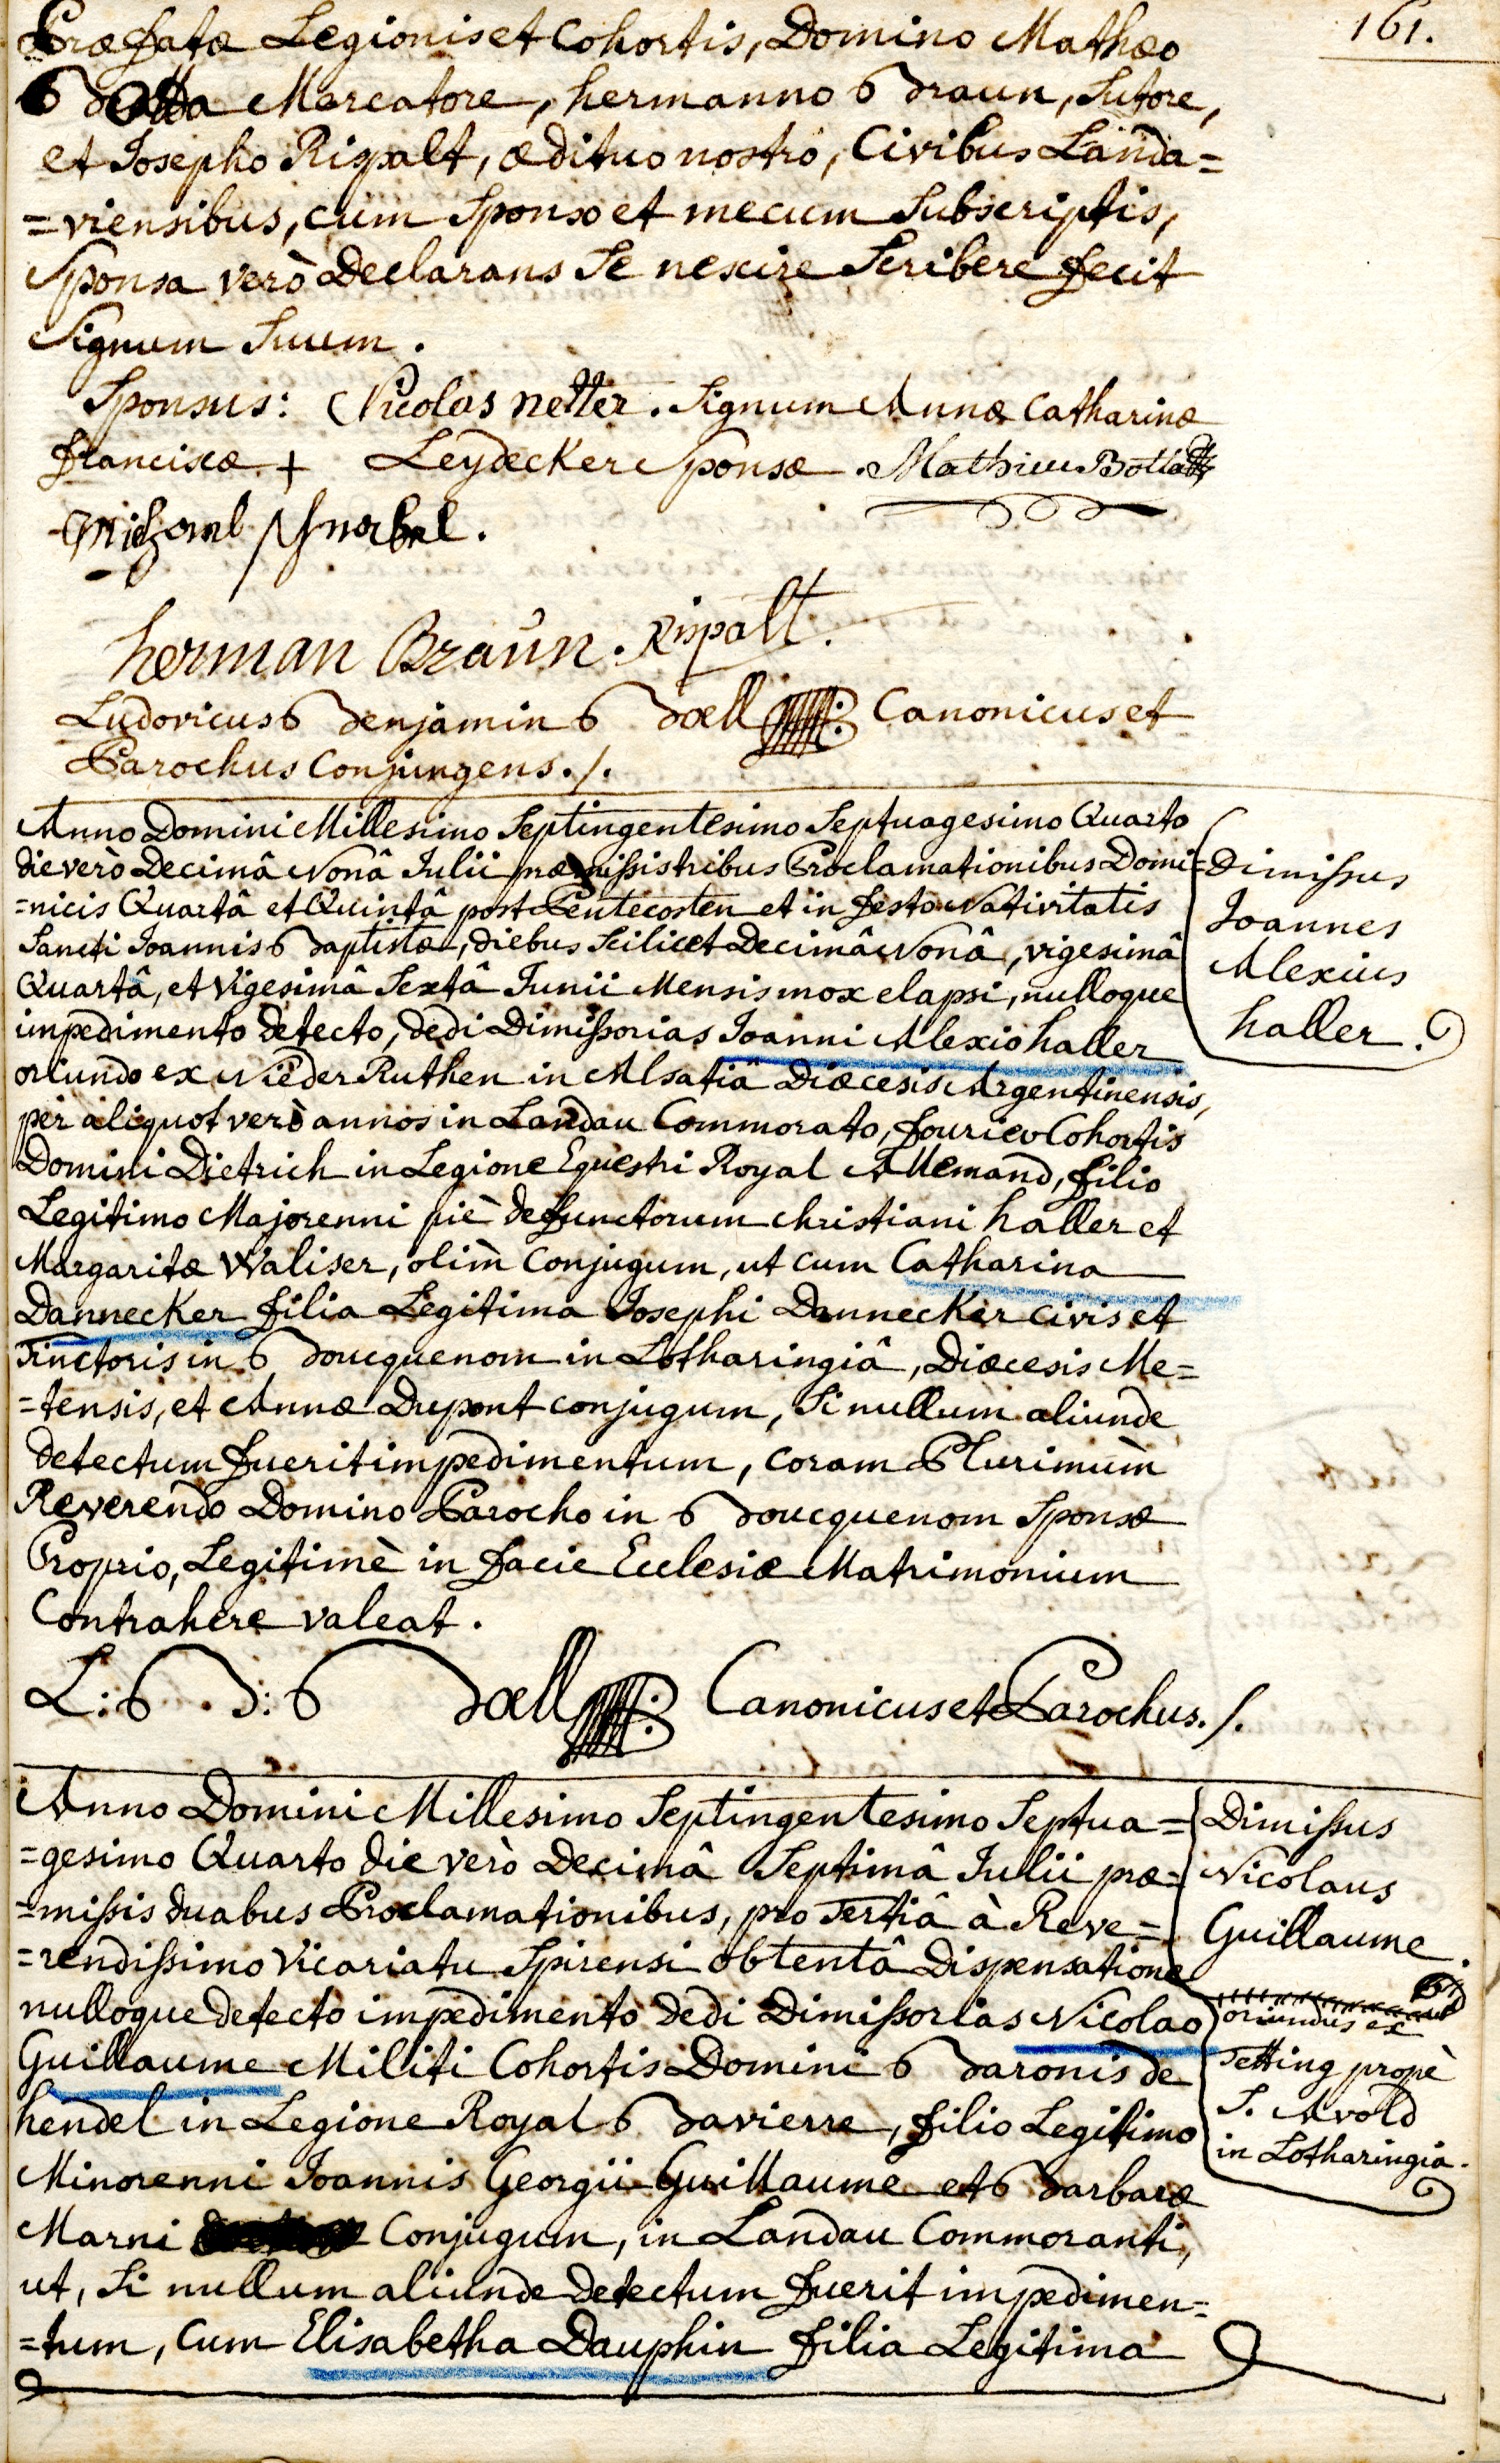 161.
Præfatæ Legionis et Cohortis, Domino Mathæo
Botta Mercatore, hermanno Braun, Sutore,
et Josepho Rispalt, ædituo nostro, Civibus Landa=
=viensibus, cum Sponso et mecum Subscriptis,
Sponsa verò Declarans Se nescire Scribere fecit
Signum Suum.
Sponsus: Nicolas netter. Signum Annæ Catharinæ
franciscæ + Leydecker Sponsæ. Mathieu Botta
Michael Schnæbel.
herman Braun. Rispalt.
Ludovicus Benjamin Boell Canonicus et
Parochus Conjungens./.
Anno Domini Millesimo Septingentesimo Septuagesimo Quarto
die verò Decimâ Nonâ Julii præmissis tribus Proclamationibus Domi=
=nicis Quartâ et Quintâ post Pentecosten et in festo Nativitatis
Sancti Joannis Baptistæ, diebus Scilicet Decimâ Nonâ, vigesimâ
Quartâ, et Vigesimâ Sextâ Junii Mensis mox elapsi, nulloque
impedimento detecto, dedi Dimissorias Joanni Alexio haller
oriundo ex Nieder Ruthen in Alsatiâ Diæcesis Argentinensis,
per aliquot verò annos in Landau Commorato, fourier Cohortis
Domini Dietrich in Legione Equestri Royal Allemand, filio
Legitimo Majorenni piè defunctorum Christiani haller et
Margaritæ Waliser, olim Conjugum, ut cum Catharina
Dannecker filia Legitima Josephi Dannecker civis et
Tinctoris in Boucquenom in Lotharingiâ, Diæcesis Me=
=tensis, et Annæ Dupont conjugum, Si nullum aliunde
detectum fuerit impedimentum, coram Plurimùm
Reverendo Domino Parocho in Boucquenom Sponsæ
Proprio, Legitimè in facie Ecclesiæ Matrimonium
Contrahere valeat.
L: B: Boell Canonicus et Parochus./.
Dimissus
Joannes
Alexius
haller.
Anno Domini Millesimo Septingentesimo Septua=
=gesimo Quarto die verò Decimâ Septimâ Julii præ=
=missis duabus Proclamationibus, pro Tertiâ à Reve=
=rendissimo Vicariatu Spirensi obtentâ Dispensatione
nulloque detecto impedimento dedi Dimissorias Nicolao
Guillaume Militi Cohortis Domini Baronis de
hendel in Legione Royal Bavierre, filio Legitimo
Minorenni Joannis Georgii Guillaume et Barbaræ
Marni Conjugum, in Landau Commoranti,
ut, Si nullum aliunde detectum fuerit impedimen=
=tum, Cum Elisabetha Dauphin filia Legitima
Dimissus
Nicolaus
Guillaume.
oriundus ex
Tetting propè
S. Avold
in Lotharingia.